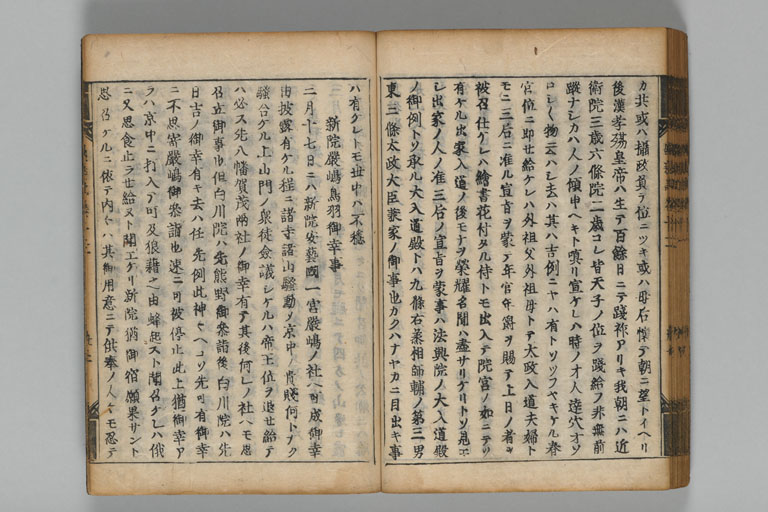 カ共或ハ攝政資テ位ニツキ或ハ母后懐テ朝ニ望トイヘリ
後漢孝殤皇帝ハ生テ百餘日ニテ踐祚アリキ我朝ニハ近
衛院三歳六條院二歳コレ皆天子ノ位ヲ踐給フ非無前
蹤ナシカハ人ノ傾申ヘキト嗔リ宣ケレハ時ノ才人達穴オソ
ロシ〱物云ハシ去ハ其ハ吉例ニヤハ有トソツフヤキケル春
官位ニ即せ給ケレハ外祖父外祖母トテ太政入道夫婦ト
モニ三后ニ准ル宣旨ヲ蒙テ年官年爵ヲ賜テ上日ノ者ヲ
被召仕ケレハ繪書花付タル侍トモ出入テ院宮ノ如ニテソ
有ケル出家入道ノ後モナヲ榮耀名聞ハ盡サリケリトソ見エ
シ出家ノ人ノ准三后ノ宣旨ヲ蒙事ハ法興院ノ大入道殿
ノ御例トソ承ル大入道殿トハ九條右丞相師輔ノ第三男
東三條太政大臣兼家ノ御事也カクハナヤカニ目出キ事
ハ有クレトモ世中ハ不穏
新院嚴嶋鳥羽御幸事
二月十七日ニハ新院安藝國一宮嚴嶋ノ社ヘ可成御幸
由披露有ケル程ニ諸寺諸山騒動ソ京中ノ貴賤何トナク
騒合ケル上山門ノ衆徒僉議シケルハ帝王位ヲ退せ給テ
ハ必ス先八幡賀茂兩社ノ御幸有テ其後何レノ社ヘモ思
召立御事也但白川院ハ先熊野御参詣後白川院ハ先
日吉ノ御幸有キ去ハ任先例此神ヒヘコソ先可有御幸
ニ不思寄嚴嶋御参詣也速ニ可被停止此上猶御幸ア
ラハ京中ニ打入テ可及狼藉之由蜂起スト聞召ケレハ俄
ニ又思食止ラせ給ヌト聞エケリ新院猶御宿願果サント
思召ケルニ依テ内〱ハ其御用意ニテ供奉ノ人〱モ忍テ